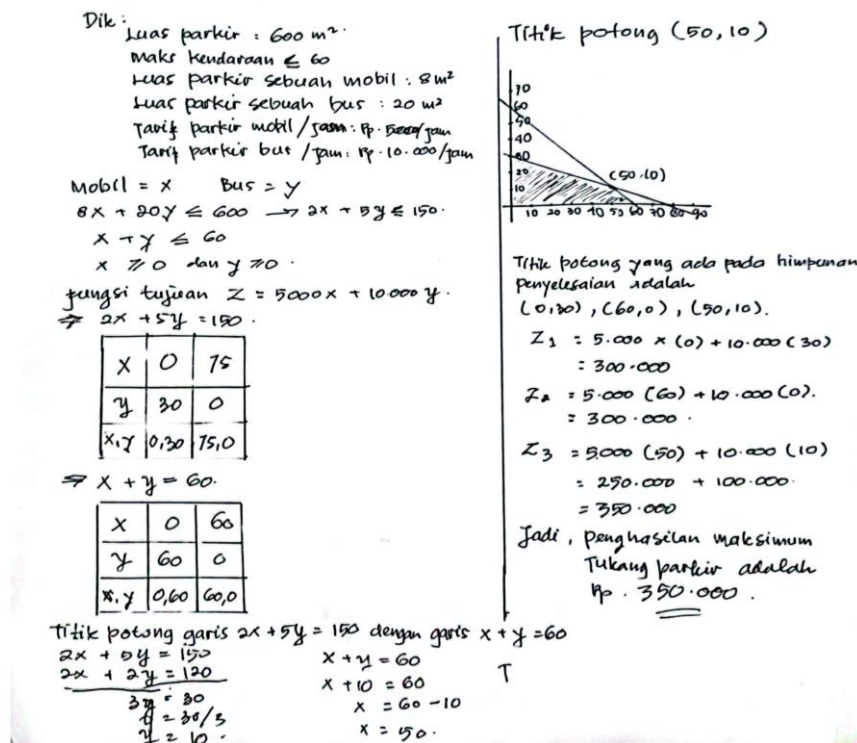 Dik :
Luas parkir : 600 m².
Maks kendaraan ≤ 60
Luas parkir sebuah mobil : 8 m²
Luas parkir sebuah bus : 20 m²
Tarif parkir mobil / jam : Rp. 5000/jam
Tarif parkir bus / jam : Rp. 10.000/jam
Mobil = x Bus = y
8x + 20y ≤ 600 → 2x + 5y ≤ 150.
x + y ≤ 60
x ≥ 0 dan y ≥ 0.
fungsi tujuan Z = 5000x + 10.000 y.
⇒ 2x + 5y = 150.
X 0 75
y 30 0
x,y 0,30 75,0
⇒ x + y = 60.
X 0 60
y 60 0
x,y 0,60 60,0
Titik potong garis 2x + 5y = 150 dengan garis x + y = 60
2x + 5y = 150
2x + 2y = 120
3y = 30
y = 30/3
y = 10.
x + y = 60
x + 10 = 60
x = 60 - 10
x = 50.
Titik potong (50,10)
70
60
50
40
30
20
10
(50,10)
10 20 30 40 50 60 70 80 90
Titik potong yang ada pada himpunan
penyelesaian adalah
(0,30), (60,0), (50,10).
Z1 = 5.000 x (0) + 10.000 (30)
= 300.000
Z2 = 5.000 (60) + 10.000 (0).
= 300.000.
Z3 = 5.000 (50) + 10.000 (10)
= 250.000 + 100.000.
= 350.000
Jadi, penghasilan maksimum
Tukang parkir adalah
Rp. 350.000.
T